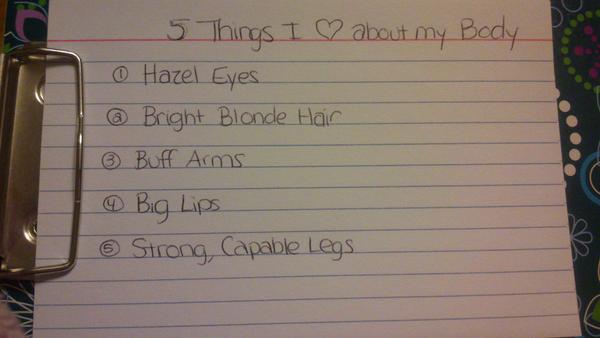 5 Things I ♡ about my Body
① Hazel Eyes
② Bright Blonde Hair
③ Buff Arms
④ Big Lips
⑤ Strong, Capable Legs